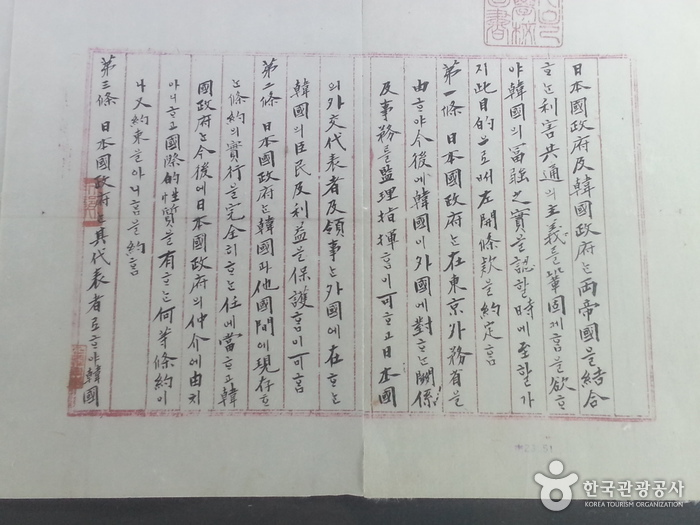 日本國政府及韓國政府는 両帝國을 結合
ᄒᆞ는 利害共通의 主義를 鞏固케 ᄒᆞᆷ을 欲ᄒᆞ
야 韓國의 富强之實을 認ᄒᆞᆯ 時에 至ᄒᆞᆯ가
지 此目的으로ᄡᅥ 左開條款을 約定ᄒᆞᆷ
第一條 日本國政府는 在東京外務省을
由ᄒᆞ야 今後에 韓國이 外國에 對ᄒᆞ는 關係
及事務를 監理指揮ᄒᆞᆷ이 可ᄒᆞ고 日本國
의 外交代表者及領事는 外國에 在ᄒᆞ는
韓國의 臣民及利益을 保護ᄒᆞᆷ이 可ᄒᆞᆷ
第二條 日本國政府는 韓國과 他國間에 現存ᄒᆞ
는 條約의 實行을 完全히 ᄒᆞ는 任에 當ᄒᆞ고 韓
國政府는 今後에 日本國政府의 仲介에 由치
아니ᄒᆞ고 國際的性質을 有ᄒᆞ는 何等條約이
나 又約束을 아니ᄒᆞᆷ을 約ᄒᆞᆷ
第三條 日本國政府는 其代表者로 ᄒᆞ야 韓國
한국관광공사
KOREA TOURISM ORGANIZATION